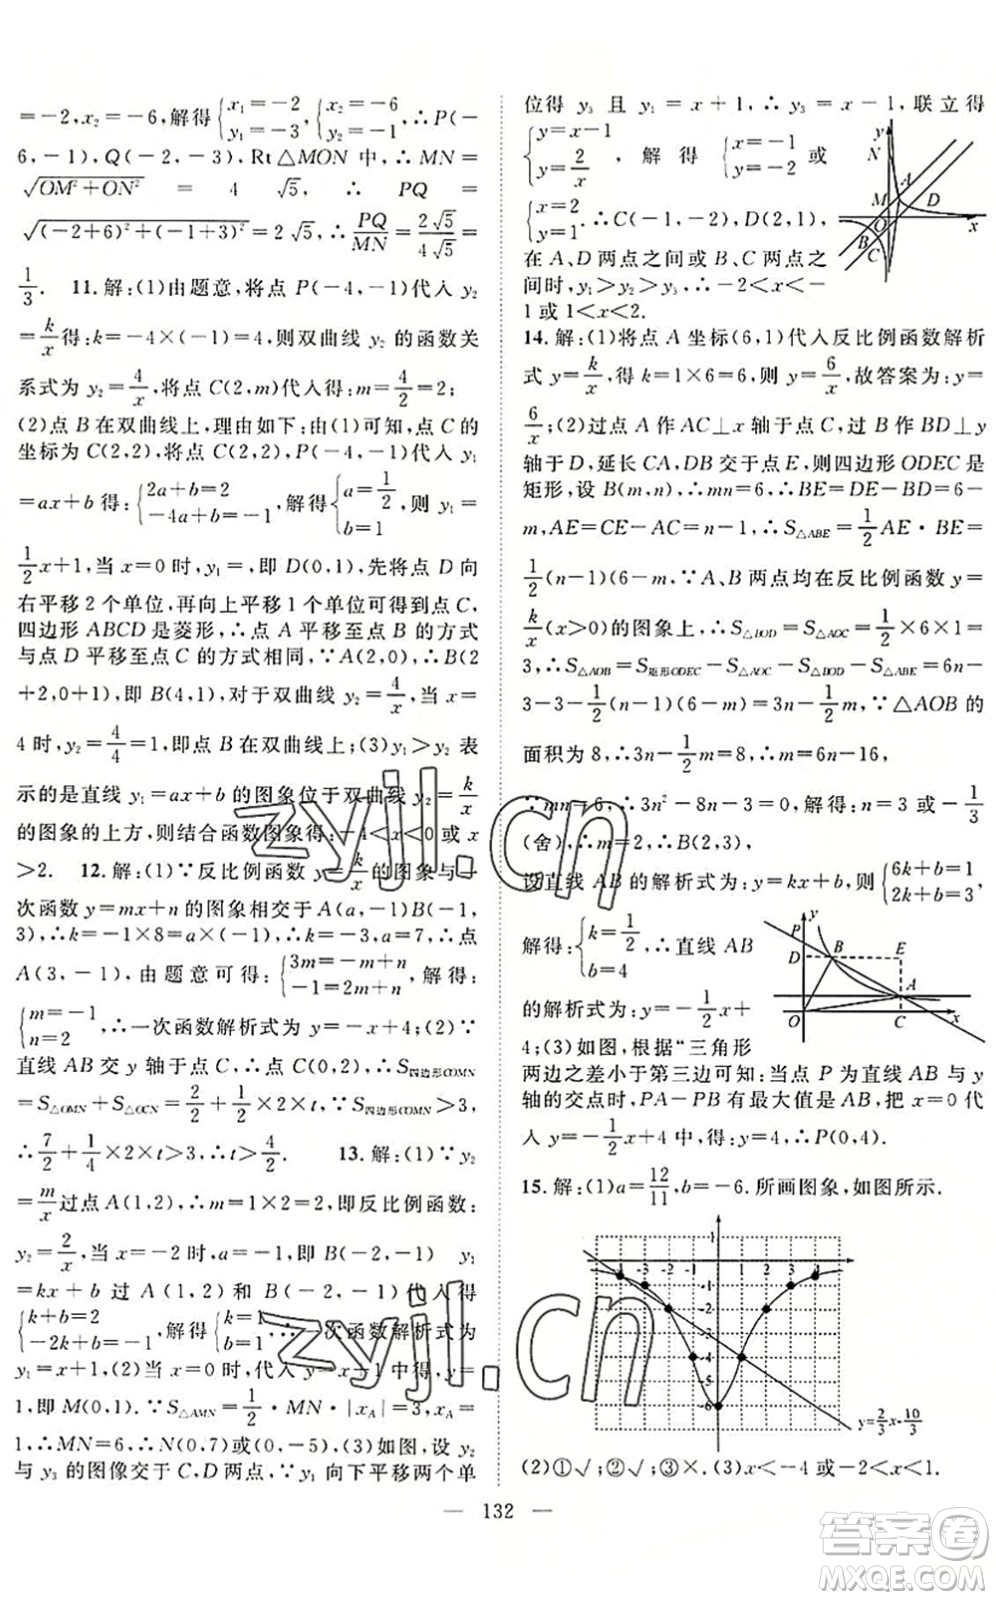 =-2,x₂=-6,解得{x₁=-2 y₁=-3,{x₂=-6 y₂=-1,∴P(-
6,-1),Q(-2,-3),Rt△MON 中,∴MN=
√(OM²+ON²) = 4 √5, ∴ PQ =
√((-2+6)²+(-1+3)²)=2√5,∴PQ/MN=2√5/4√5=
1/3. 11.解:(1)由题意,将点 P(-4,-1)代入 y₂
=k/x得:k=-4×(-1)=4,则双曲线 y₂ 的函数关
系式为 y₂=4/x,将点 C(2,m)代入得:m=4/2=2;
(2)点 B 在双曲线上,理由如下:由(1)可知,点 C 的
坐标为 C(2,2),将点 C(2,2),P(-4,-1)代入 y₁
=ax+b 得:{2a+b=2 -4a+b=-1,解得:{a=1/2 b=1,则 y₁=
1/2x+1,当 x=0 时,y₁=,即 D(0,1),先将点 D 向
右平移 2 个单位,再向上平移 1 个单位可得到点 C,
四边形 ABCD 是菱形,∴点 A 平移至点 B 的方式
与点 D 平移至点 C 的方式相同,∵A(2,0),∴B(2
+2,0+1),即 B(4,1),对于双曲线 y₂=4/x,当 x=
4 时,y₂=4/4=1,即点 B 在双曲线上;(3)y₁>y₂ 表
示的是直线 y₁=ax+b 的图象位于双曲线 y₂=k/x
的图象的上方,则结合函数图象得:-4<x<0 或 x
>2. 12.解:(1)∵反比例函数 y=k/x的图象与一
次函数 y=mx+n 的图象相交于 A(a,-1)B(-1,
3),∴k=-1×8=a·(-1),∴k=-3,a=7,∴点
A(3,-1),由题意可得:{3m=-m+n -1=2m+n,解得:
{m=-1 n=2,∴一次函数解析式为 y=-x+4;(2)∵
直线 AB 交 y 轴于点 C,∴点 C(0,2),∴S四边形COMN
=S△OMN+S△OCN=2/2+1/2×2×t,∵S四边形COMN>3,
∴7/2+1/4×2×t>3,∴t>4/2. 13.解:(1)∵y₂
=m/x过点 A(1,2),∴m=1×2=2,即反比例函数:
y₂=2/x,当 x=-2 时,a=-1,即 B(-2,-1) y₁=
=kx+b 过 A(1,2)和 B(-2,-1)代入得
{k+b=2 -2k+b=-1,解得{k=1 b=1,∴一次函数解析式为
y₁=x+1,(2)当 x=0 时,代入 y=x+1 中得,y=
1,即 M(0,1),∵S△AMN=1/2·MN·|xA|=3 且 xA=
1,∴MN=6,∴N(0,7)或(0,-5),(3)如图,设 y₂
与 y₃ 的图像交于 C,D 两点,∵y₁ 向下平移两个单
位得 y₃ 且 y₁=x+1,∴y₃=x-1,联立得
{y=x-1 y=2/x,解得{x=-1 y=-2或
{x=2 y=1.∴C(-1,-2),D(2,1),
在 A,D 两点之间或 B、C 两点之
间时,y₁>y₂>y₃,∴-2<x<-
1 或 1<x<2.
y
N
A
M
D
O
x
B
C
14.解:(1)将点 A 坐标(6,1)代入反比例函数解析
式 y=k/x,得 k=1×6=6,则 y=6/x,故答案为:y=
6/x;(2)过点 A 作 AC⊥x 轴于点 C,过 B 作 BD⊥y
轴于 D,延长 CA,DB 交于点 E,则四边形 ODEC 是
矩形,设 B(m,n),∴mn=6,∴BE=DE-BD=6-
m,AE=CE-AC=n-1,∴S△ABE=1/2AE·BE=
1/2(n-1)(6-m),∵A、B 两点均在反比例函数 y=
k/x(x>0)的图象上,∴S△BOD=S△AOC=1/2×6×1=
3,∴S△AOB=S矩形ODEC-S△AOC-S△BOD-S△ABE=6n-
3-3-1/2(n-1)(6-m)=3n-1/2m,∵△AOB 的
面积为 8,∴3n-1/2m=8,∴m=6n-16,
∵mn=6,∴3n²-8n-3=0,解得:n=3 或-1/3
(舍),∴m=2,∴B(2,3),
设直线 AB 的解析式为:y=kx+b,则{6k+b=1 2k+b=3,
解得:{k=-1/2 b=4,∴直线 AB
的解析式为:y=-1/2x+
4;(3)如图,根据“三角形
两边之差小于第三边可知:当点 P 为直线 AB 与 y
轴的交点时,PA-PB 有最大值是 AB,把 x=0 代
入 y=-1/2x+4 中,得:y=4,∴P(0,4).
y
P
D
B
E
A
O
C
x
15.解:(1)a=12/11,b=-6.所画图象,如图所示.
1
-4 -3 -2 -1 1 2 3 4
-1
-2
-4
-6
y=2/3x-10/3
(2)①√;②√;③×.(3)x<-4 或-2<x<1.
— 132 —
zyjl.cn
zyjl.cn
答案卷
MXQE.COM